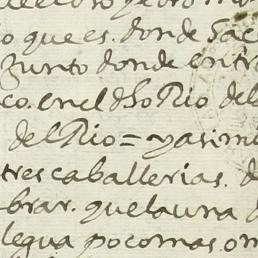 o que es. donde sace
Junto donde entra
co. en el dho Rio del
del Rio = y asimi
tres caballerias. d
brar. que la una d
legua poco mas. o m